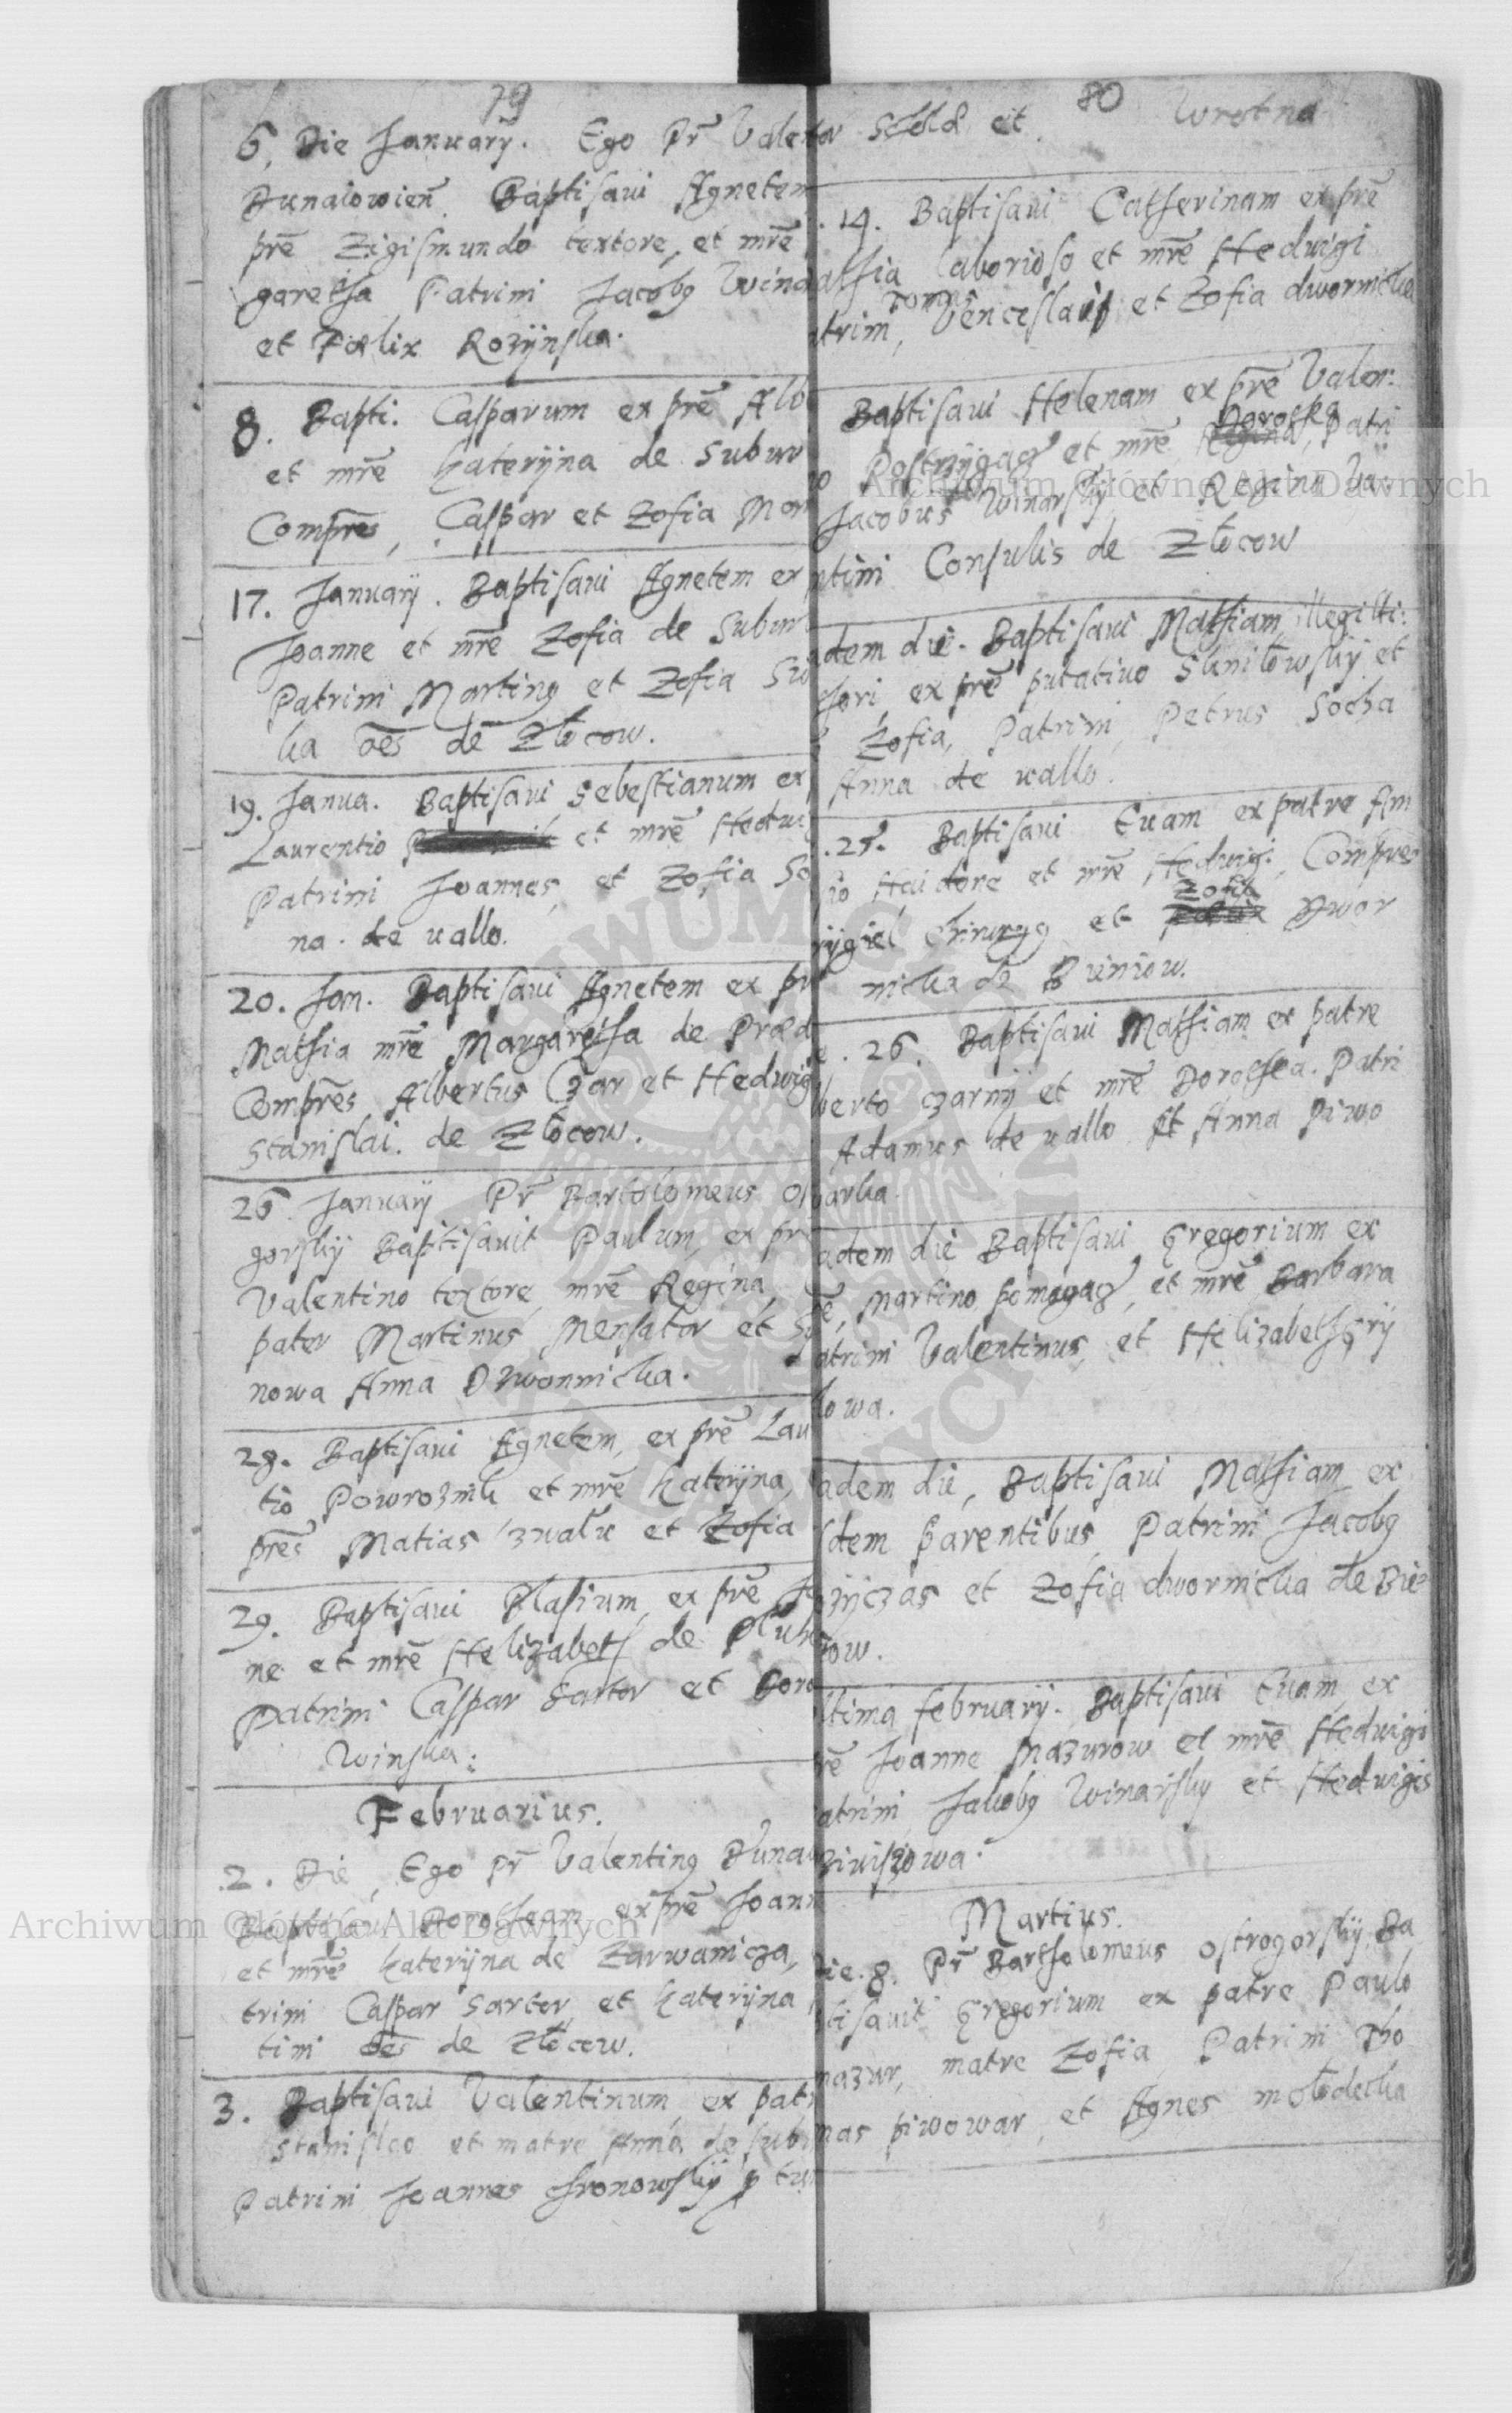 79
6. Die Januarÿ. Ego Pr Valen
Dunaiowień Baptisaui Agnetem
prē Zigismundo textore, et mrē
garetha Patrini Jacobq Wina
et Fœlix Rozÿnska.
8. Bapti. Casparum ex prē Alb
et mrē Katerÿna de Suburb
Comprēs, Caspar et Zofia Mar
17. Januarÿ. Baptisaui Agnetem ex
Joanne et mrē Zofia de Subur
Patrini Martinq et Zofia Su
ka oēs de Złocow.
19. Janua. Baptisaui Sebestianum ex
Laurentio et mrē Hedui
Patrini Joannes, et Zofia So
na. de uallo.
20. Jan. Baptisaui Agnetem ex pr
Mathia mrē Margaretha de Præd
Comprēs Albertus Czar et Hedwig
Stanislai. de Złocow.
26. Januarÿ Pr Bartolomeus O
gorskÿ Baptisauit Paulum, ex pr
Valentino textore, mrē Regina,
pater Martinus Mensator et
nowa Anna Dzwonnicka.
28. Baptisaui Agnetem, ex prē Lau
tio Powroznik et mrē Katerÿna,
prēs Matias zualic et Zofia
29. Baptisaui Blasium, ex prē Jo
ne et mrē Helizabeth de Pluh
Patrini Caspar Sartor et Doro
Winska:
Februarius.
2. Die, Ego Pr Valentinq Duna
Baptisaui Dorotheam ex prē Joann
et mrē Katerÿna de Zarwanicza,
trini Caspar Sartor et Katerÿna
tini oēs de Złocow.
3. Baptisaui Valentinum ex patr
Stanislao et matre Anna de Subu
Patrini Joannes Chronowskÿ
80
Wrotna
Schola et
14. Baptisaui Catherinam ex prē
athia laborioso et mrē Heduigi
Tomas
trini, Venceslaus et Zofia dwornicka
Baptisaui Helenam ex prē Valen:
Dorothea
Postrzÿgacz et mrē Regina, Patri
Jacobus Winarskÿ et Regina Va:
ntini Consulis de Złocow
adem die. Baptisaui Mathiam illegitti:
thori ex prē putatiuo Stnilowskÿ et
Zofia, Patrini, Petrus Socha
Anna de uallo.
25. Baptisaui Euam ex patre An
io Haidone et mrē Heduigi, Comprēs
Zofia
rÿgiel Chirurgq et Dwor
nicka de Bieniow.
e. 26. Baptisaui Mathiam ex patre
lberto czarnÿ et mrē Dorothea. Patri
Adamus de uallo et Anna Piwo
warka.
adem die Baptisaui Gregorium ex
rē, Martino pomagacz, et mrē Barbara
atrini Valentinus, et Helizabeth grÿ
lowa.
adem die, Baptisaui Mathiam ex
sdem parentibus, Patrini Jacobq
zÿczas et Zofia dwornicka de Bie
iow.
ltima februarÿ. Baptisaui Euam, ex
rē Joanne Mazurow et mrē Heduigi
atrini Jakobq Winarskÿ et Heduigis
ziuiszowa.
Martius.
Die. 8. Pr Bartholomeus Ostrogorskÿ Ba
tisauit Gregorium ex patre Paulo
mazur, matre Zofia, Patrini Tho
mas piwowar, et Agnes młodecka
Archiwum Główne Akt Dawnych
Archiwum Główne Akt Dawnych